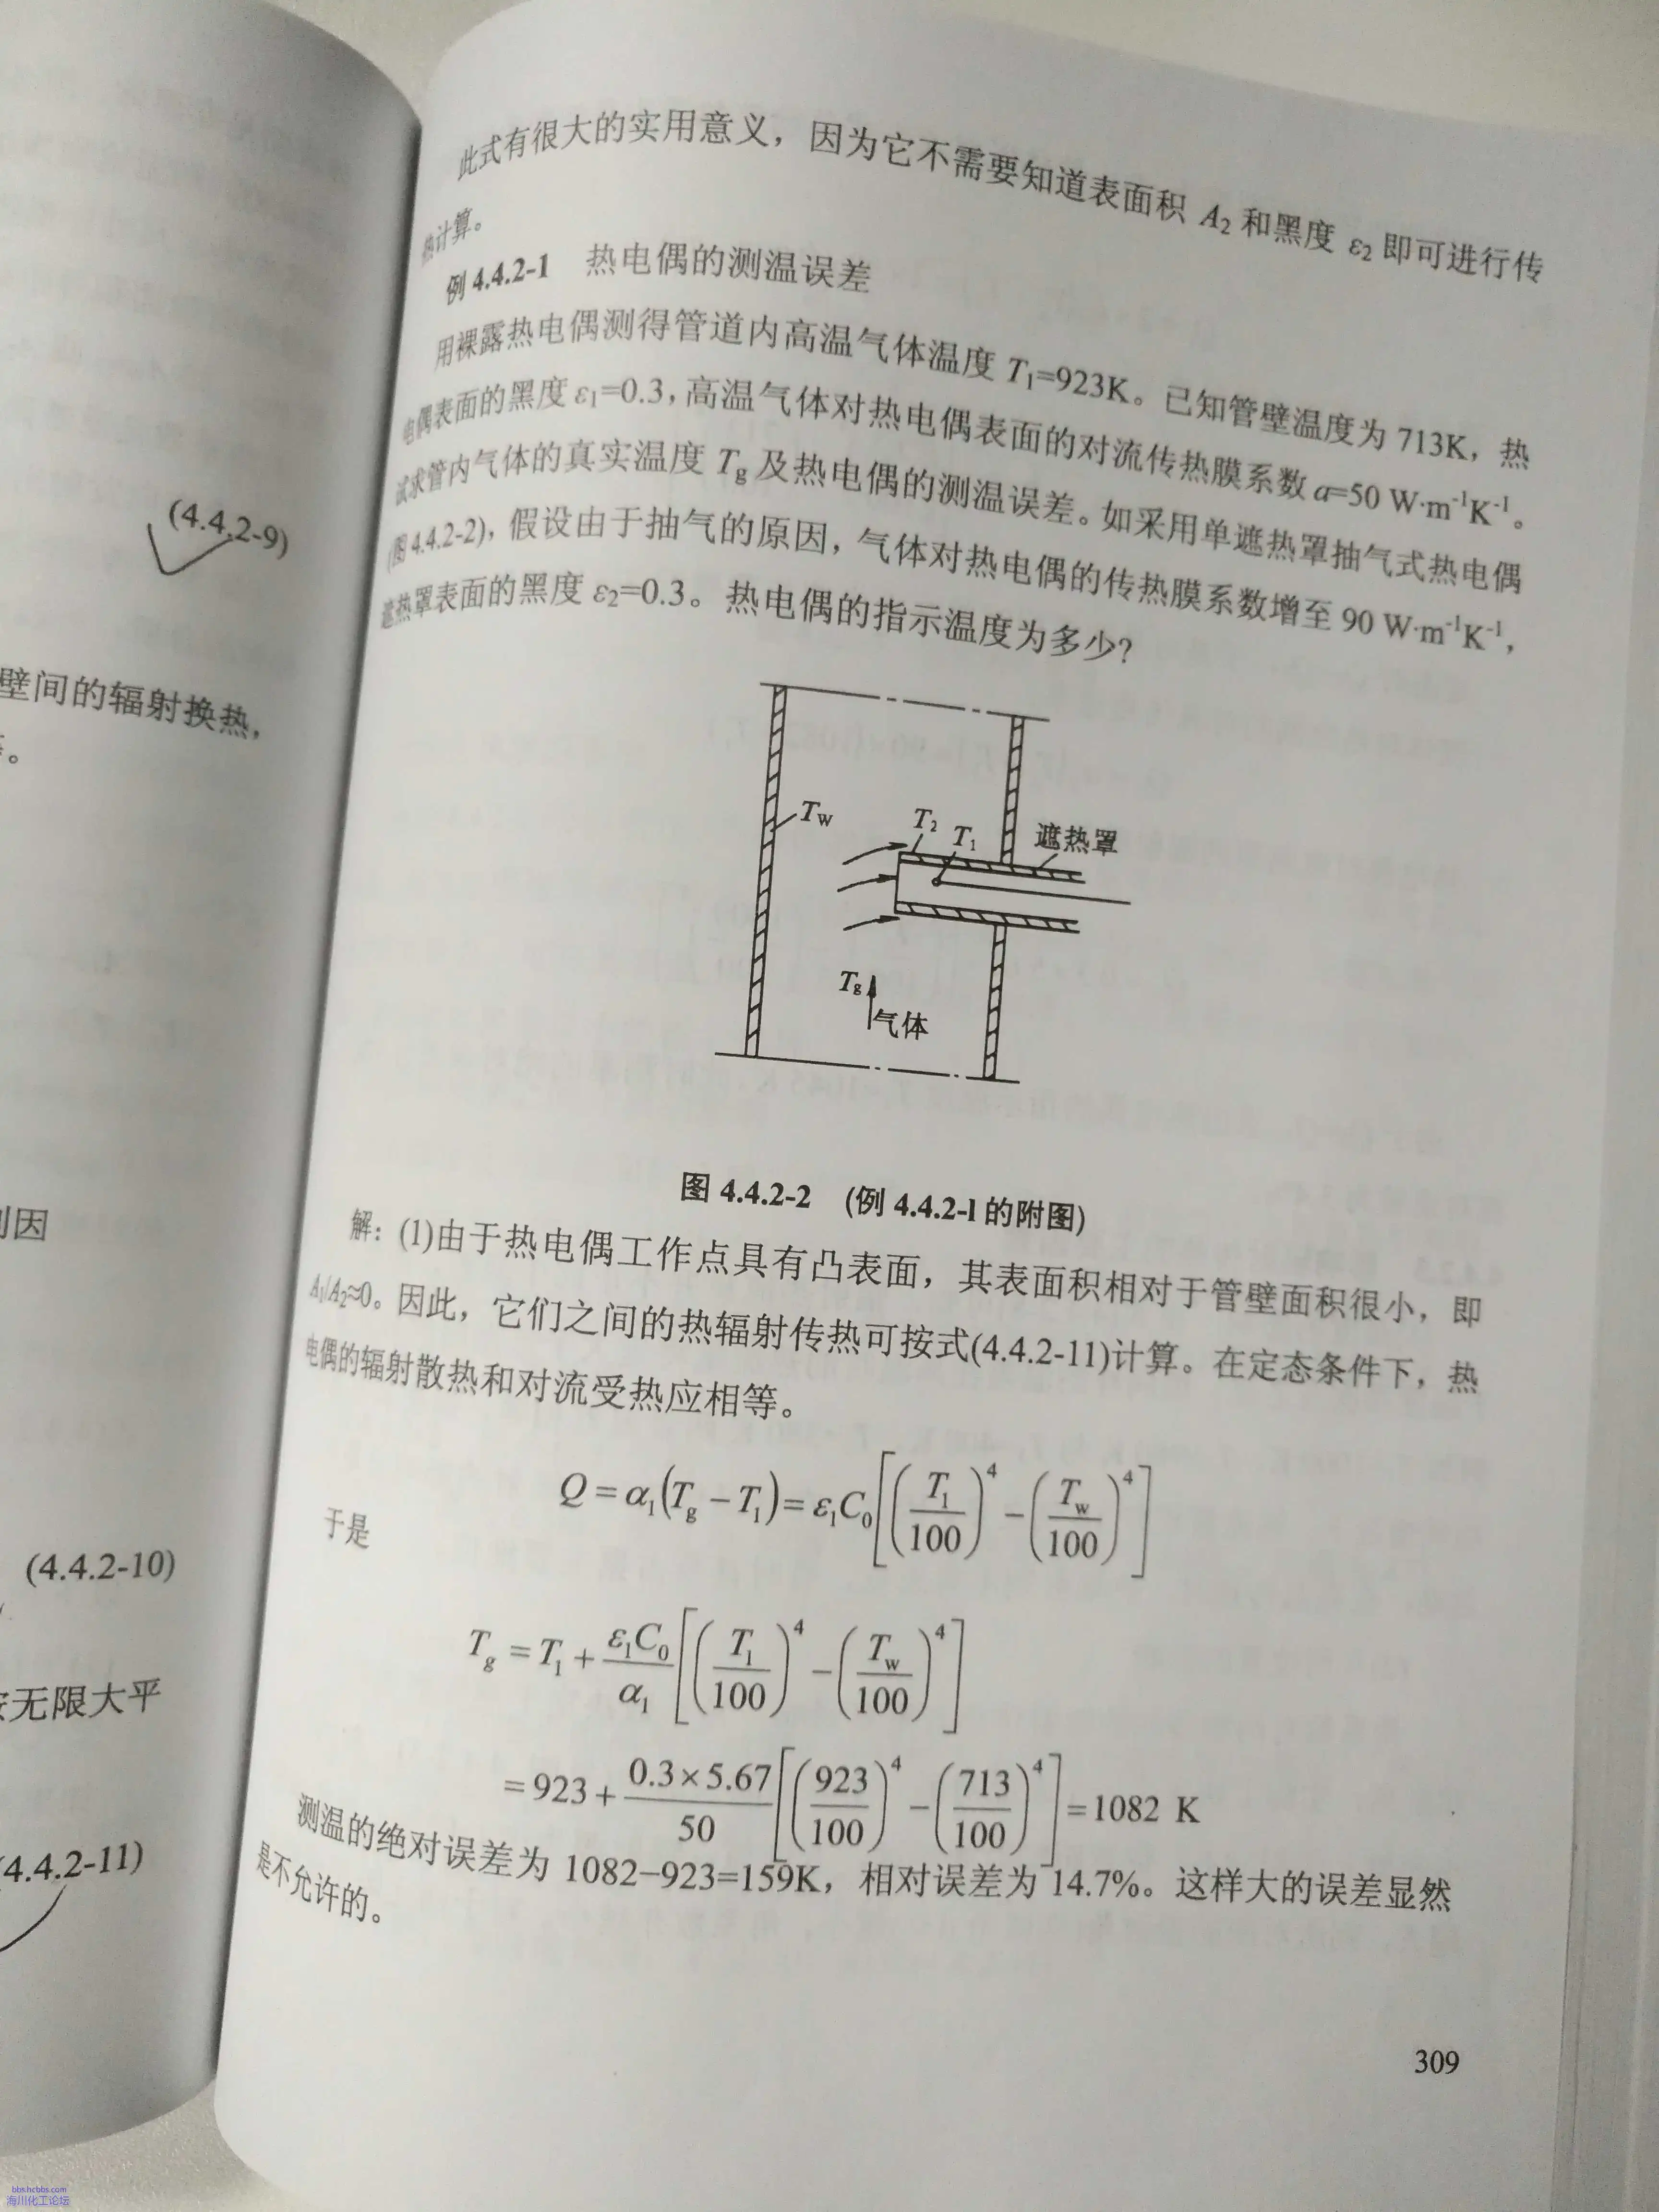 (4.4.2-9)
壁间的辐射换热,
。
因
(4.4.2-10)
无限大平
(4.4.2-11)
此式有很大的实用意义，因为它不需要知道表面积 A₂ 和黑度 ε₂ 即可进行传
热计算。
例 4.4.2-1 热电偶的测温误差
用裸露热电偶测得管道内高温气体温度 T₁=923K。已知管壁温度为 713K，热
电偶表面的黑度 ε₁=0.3，高温气体对热电偶表面的对流传热膜系数 α=50 W·m⁻¹K⁻¹。
试求管内气体的真实温度 Tg 及热电偶的测温误差。如采用单遮热罩抽气式热电偶
(图 4.4.2-2)，假设由于抽气的原因，气体对热电偶的传热膜系数增至 90 W·m⁻¹K⁻¹，
遮热罩表面的黑度 ε₂=0.3。热电偶的指示温度为多少?
Tw
T₂
T₁
遮热罩
Tg
气体
图 4.4.2-2 (例 4.4.2-1 的附图)
解：(1)由于热电偶工作点具有凸表面，其表面积相对于管壁面积很小，即
A₁/A₂≈0。因此，它们之间的热辐射传热可按式(4.4.2-11)计算。在定态条件下，热
电偶的辐射散热和对流受热应相等。
Q = α₁(Tg − T₁) = ε₁C₀[(T₁/100)⁴ − (Tw/100)⁴]
于是
Tg = T₁ + ε₁C₀/α₁[(T₁/100)⁴ − (Tw/100)⁴]
= 923 + 0.3×5.67/50[(923/100)⁴ − (713/100)⁴] = 1082 K
测温的绝对误差为 1082−923=159K，相对误差为 14.7%。这样大的误差显然
是不允许的。
309
bbs.hcbbs.com
海川化工论坛